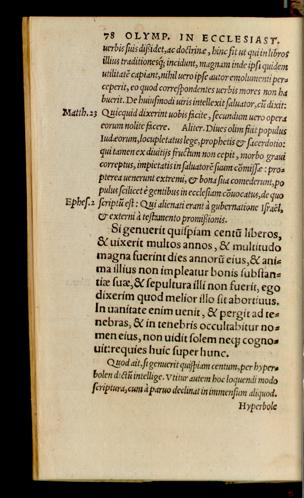 78 OLYMP. IN ECCLESIAST.
uerbis suis dissidet, ac doctrinæ, hinc fit ut qui in libros
illius traditionesq́; incidunt, magnam inde ipsi quidem
utilitatē capiant, nihil uero ipse autor emolumenti per-
ceperit, eo quod correspondentes uerbis mores non ha
buerit. De huiusmodi uiris intellexit saluator, cū dixit:
Matth.23 Quicquid dixerint uobis facite, secundum uero opera
eorum nolite facere. Aliter. Diues olim fuit populus
Iudæorum, locupletatus lege, prophetis & sacerdotio:
qui tamen ex diuitijs fructum non cepit, morbo graui
correptus, impietatis in saluatorē suam cōmissæ: pro-
pterea uenerunt extremi, & bona sua comederunt, po
pulus scilicet è gentibus in ecclesiam cōuocatus, de quo
Ephes.2 scriptū est: Qui alienati erant à gubernatione Israël,
& externi à testamento promissionis.
Si genuerit quispiam centū liberos,
& uixerit multos annos, & multitudo
magna fuerint dies annorū eius, & ani-
ma illius non impleatur bonis substan-
tiæ suæ, & sepultura illi non fuerit, ego
dixerim quod melior illo sit abortiuus.
In uanitate enim uenit, & pergit ad te-
nebras, & in tenebris occultabitur no-
men eius, non uidit solem necq; cogno-
uit: requies huic super hunc.
Quod ait. si genuerit quispiam centum, per hyper-
bolen dictū intellige. Vtitur autem hoc loquendi modo
scriptura, cum à paruo declinat in immensum aliquod.
Hyperbole